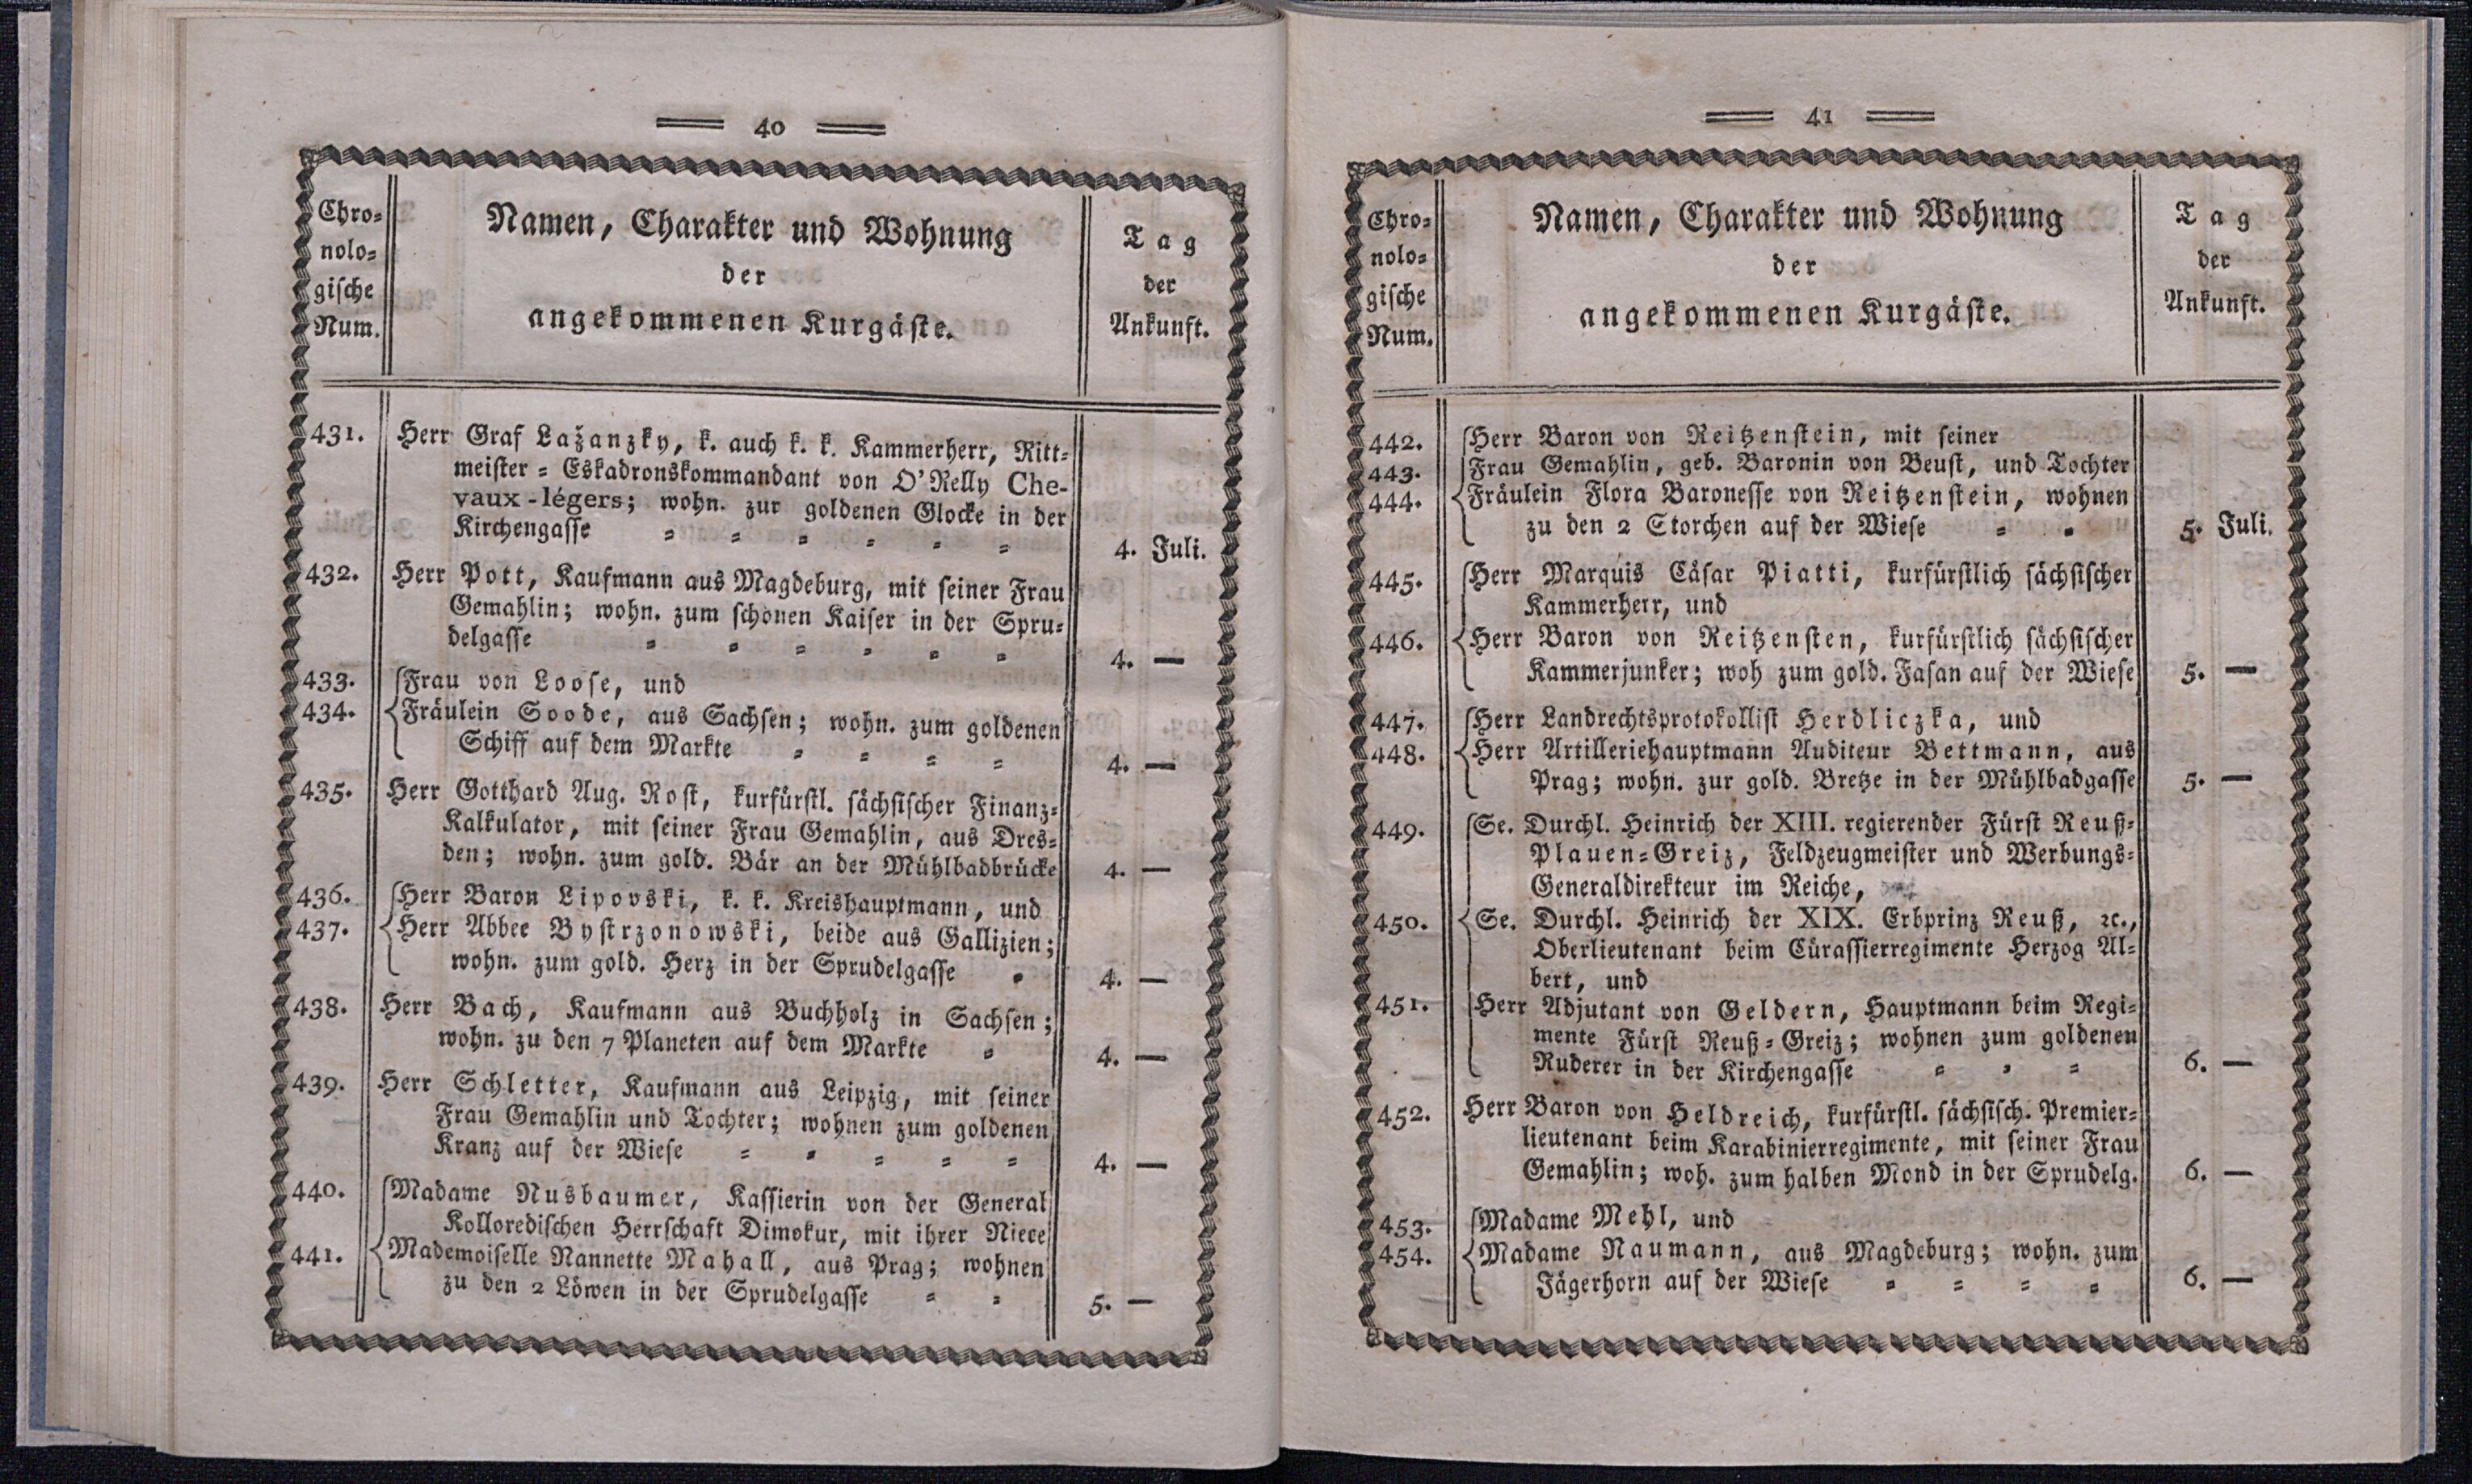 40
Chro-
nolo-
gische
Num.
Namen, Charakter und Wohnung
der
angekommenen Kurgäste.
Tag
der
Ankunft.
431. Herr Graf Lažanzky, k. auch k. k. Kammerherr, Ritt-
meister-Eskadronskommandant von O'Relly Che-
vaux-légers; wohn. zur goldenen Glocke in der
Kirchengasse = = = = = = 4. Juli.
432. Herr Pott, Kaufmann aus Magdeburg, mit seiner Frau
Gemahlin; wohn. zum schönen Kaiser in der Spru-
delgasse = = = = = = 4. —
433. Frau von Loose, und
434. Fräulein Soode, aus Sachsen; wohn. zum goldenen
Schiff auf dem Markte = = = = 4. —
435. Herr Gotthard Aug. Rost, kurfürstl. sächsischer Finanz-
Kalkulator, mit seiner Frau Gemahlin, aus Dres-
den; wohn. zum gold. Bär an der Mühlbadbrücke 4. —
436. Herr Baron Lipovski, k. k. Kreishauptmann, und
437. Herr Abbee Bystrzonowski, beide aus Gallizien;
wohn. zum gold. Herz in der Sprudelgasse = 4. —
438. Herr Bach, Kaufmann aus Buchholz in Sachsen;
wohn. zu den 7 Planeten auf dem Markte = 4. —
439. Herr Schletter, Kaufmann aus Leipzig, mit seiner
Frau Gemahlin und Tochter; wohnen zum goldenen
Kranz auf der Wiese = = = = = 4. —
440. Madame Nusbaumer, Kassierin von der General
Kolloredischen Herrschaft Dimokur, mit ihrer Niece
441. Mademoiselle Nannette Mahall, aus Prag; wohnen
zu den 2 Löwen in der Sprudelgasse = = 5. —
41
Chro-
nolo-
gische
Num.
Namen, Charakter und Wohnung
der
angekommenen Kurgäste.
Tag
der
Ankunft.
442. Herr Baron von Reitzenstein, mit seiner
443. Frau Gemahlin, geb. Baronin von Beust, und Tochter
444. Fräulein Flora Baronesse von Reitzenstein, wohnen
zu den 2 Storchen auf der Wiese = = 5. Juli.
445. Herr Marquis Cäsar Piatti, kurfürstlich sächsischer
Kammerherr, und
446. Herr Baron von Reitzensten, kurfürstlich sächsischer
Kammerjunker; woh zum gold. Fasan auf der Wiese 5. —
447. Herr Landrechtsprotokollist Herdliczka, und
448. Herr Artilleriehauptmann Auditeur Bettmann, aus
Prag; wohn. zur gold. Bretze in der Mühlbadgasse 5. —
449. Se. Durchl. Heinrich der XIII. regierender Fürst Reuß-
Plauen-Greiz, Feldzeugmeister und Werbungs-
Generaldirekteur im Reiche,
450. Se. Durchl. Heinrich der XIX. Erbprinz Reuß, ꝛc.,
Oberlieutenant beim Cürassierregimente Herzog Al-
bert, und
451. Herr Adjutant von Geldern, Hauptmann beim Regi-
mente Fürst Reuß-Greiz; wohnen zum goldenen
Ruderer in der Kirchengasse = = = 6. —
452. Herr Baron von Heldreich, kurfürstl. sächsisch. Premier-
lieutenant beim Karabinierregimente, mit seiner Frau
Gemahlin; woh. zum halben Mond in der Sprudelg. 6. —
453. Madame Mehl, und
454. Madame Naumann, aus Magdeburg; wohn. zum
Jägerhorn auf der Wiese = = = = 6. —